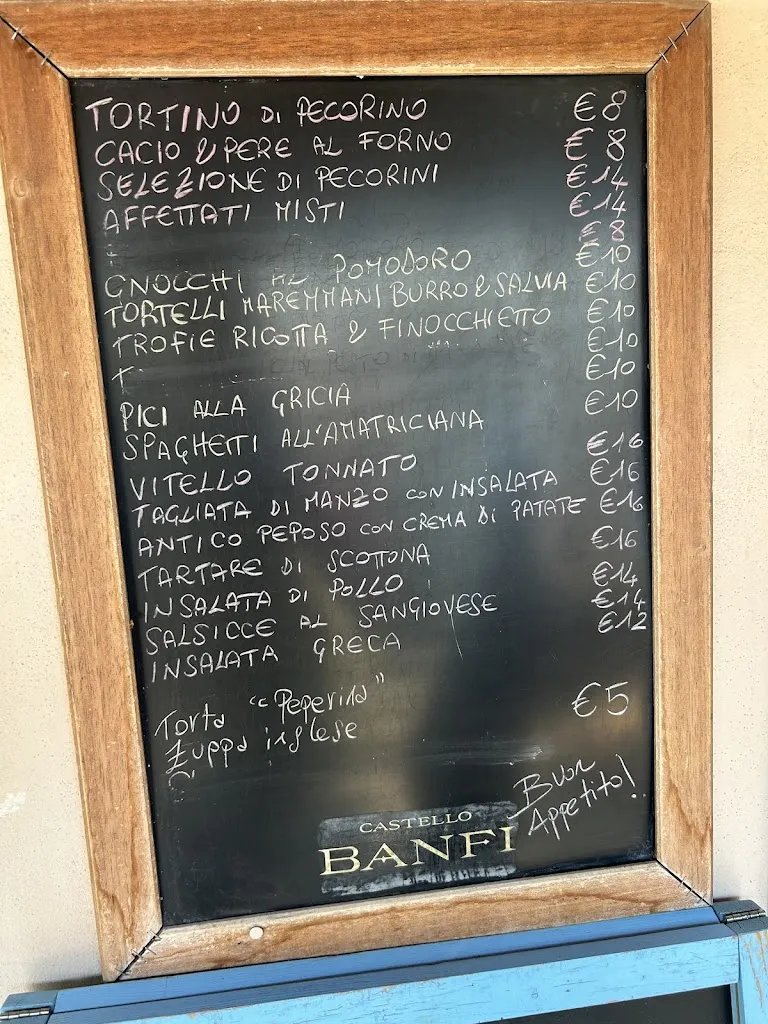 TORTINO DI PECORINO €8
CACIO & PERE AL FORNO €8
SELEZIONE DI PECORINI €14
AFFETTATI MISTI €14
€8
GNOCCHI AL POMODORO €10
TORTELLI MAREMMANI BURRO & SALVIA €10
TROFIE RICOTTA & FINOCCHIETTO €10
€10
PICI ALLA GRICIA €10
SPAGHETTI ALL'AMATRICIANA €10
VITELLO TONNATO €16
TAGLIATA DI MANZO CON INSALATA €16
ANTICO PEPOSO CON CREMA DI PATATE €16
TARTARE DI SCOTTONA €16
INSALATA DI POLLO €14
SALSICCE AL SANGIOVESE €14
INSALATA GRECA €12
Torta "Peperina"
Zuppa inglese €5
Buon
Appetito!
CASTELLO
BANFI